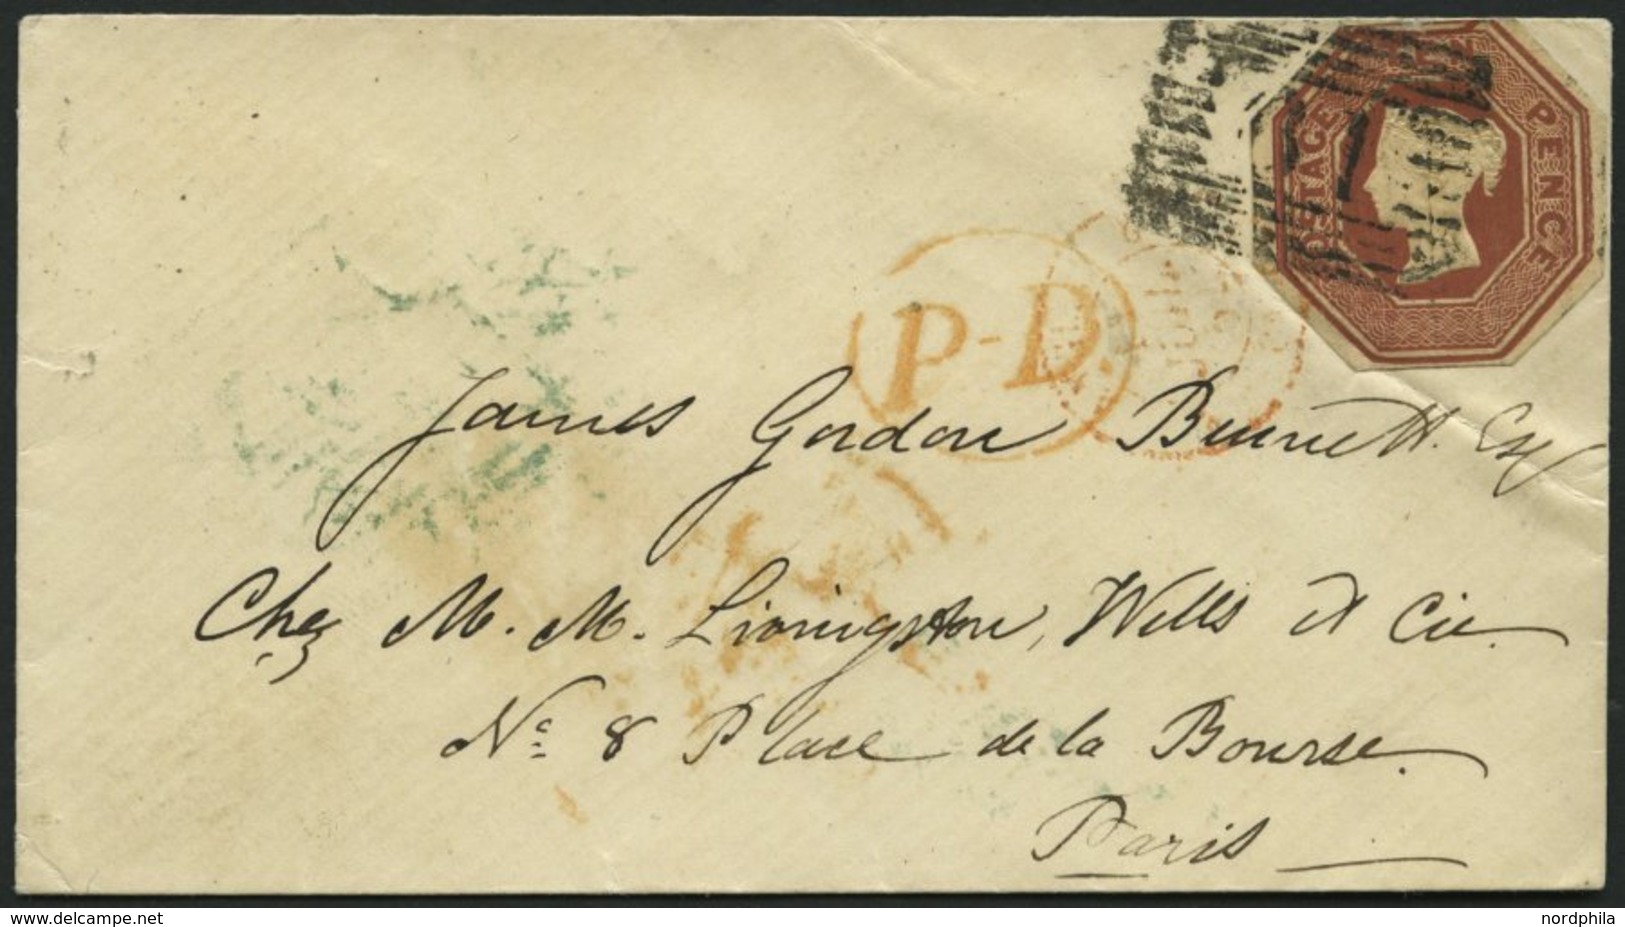 POSTAGE TEN PENCE
P-D
James Gordon Bennett. Esq
Chez M. M. Livingston, Wells et Cie.
No. 8 Place de la Bourse.
Paris
www.delcampe.net
nordphila